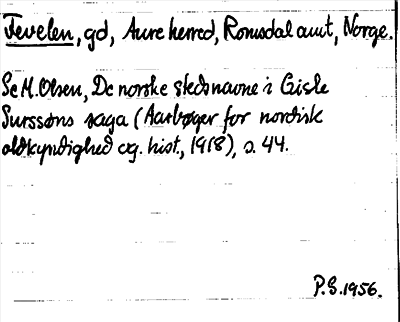 Tevelen, gd, Aure herred, Romsdal amt, Norge.
Se M. Olsen, De norske stedsnavne i Gisle
Surssøns saga (Aarbøger for nordisk
oldkyndighed og. hist., 1918), s. 44.
P.S. 1956.